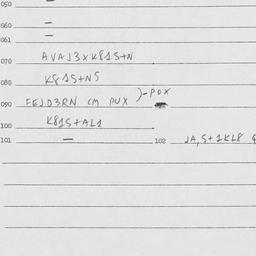 050
060 —
061 —
070 AVAJ3XK81S+N
080 K81S+NS
)-POX
090 FEJD3RN CM PUX
100 K81S+AL1
101 — 102 JA,S+1KL8